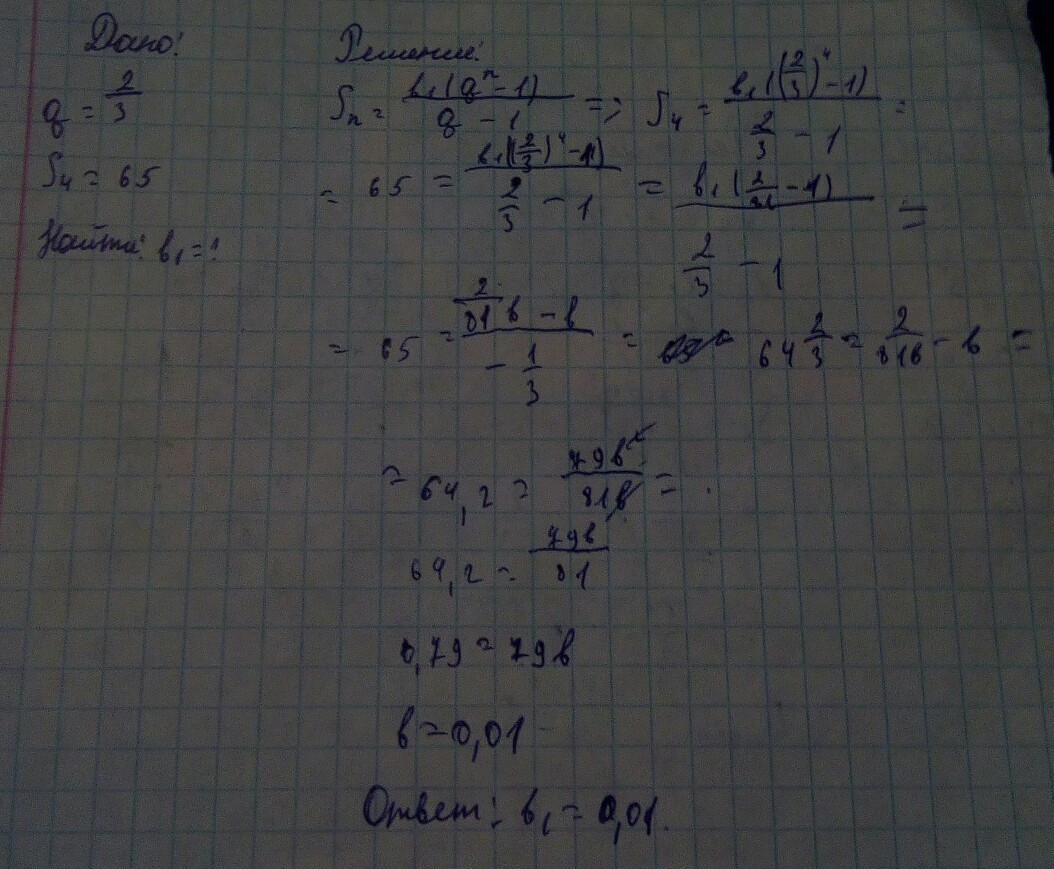 Дано:
q = 2/3
S₄ = 65
Найти: b₁ = ?
Решение:
Sₙ = b₁(qⁿ - 1)/(q - 1) => S₄ = b₁((2/3)⁴ - 1)/(2/3 - 1) =
= 65 = b₁((2/3)⁴ - 1)/(2/3 - 1) = b₁(2/81 - 1)/(2/3 - 1) =
= 65 = (2/81 b - b)/(-1/3) = 64 2/3 = 2/81b - b =
= 64,2 = 79b²/81b =
64,2 = 79b/81
0,79 = 79b
b = 0,01
Ответ: b₁ = 0,01.